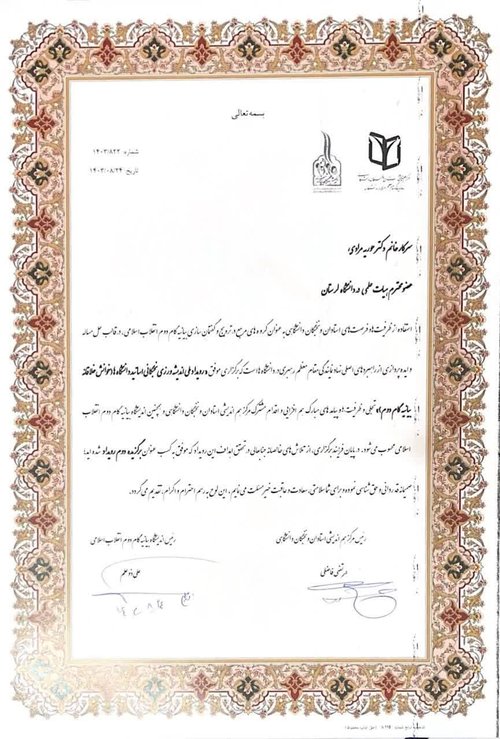 بسمه تعالی
شماره: ۱۴۰۳/۸۲۳
تاریخ: ۱۴۰۳/۰۸/۲۴
سرکار خانم دکتر حوریه مرادی،
عضو محترم هیات علمی در دانشگاه لرستان
استفاده از ظرفیت‌ها و فرصت‌های استادان و نخبگان دانشگاهی به عنوان گروه‌های مرجع و ترویج و گفتمان سازی بیانیه گام دوم انقلاب اسلامی، در قالب حل مساله
و ایده پردازی از راهبردهای اصلی نهاد نمایندگی مقام معظم رهبری در دانشگاه‌ها است که برگزاری موفق «رویداد ملی اندیشه ورزی نخبگانی اساتید دانشگاه‌ها و خوانش خلاقانه
بیانیه گام دوم» تجلی و ظرفیت‌ها و پیامدهای مبارک هم افزایی و اقدام مشترک مرکز هم اندیشی استادان و نخبگان دانشگاهی و همچنین اندیشگاه بیانیه گام دوم انقلاب
اسلامی محسوب می‌شود. در پایان فرایند برگزاری، از تلاش‌های خالصانه جنابعالی در تحقق اهداف این رویداد که موفق به کسب عنوان برگزیده دوم رویداد شده اید،
صمیمانه قدردانی و حق شناسی نموده و برای شما سلامتی، سعادت و عاقبت خیر مسئلت می‌نمایم. این لوح به رسم احترام و اکرام، تقدیم می‌گردد.
رئیس مرکز هم اندیشی استادان و نخبگان دانشگاهی
رئیس اندیشگاه بیانیه گام دوم انقلاب اسلامی
مرتضی فاضلی
علی